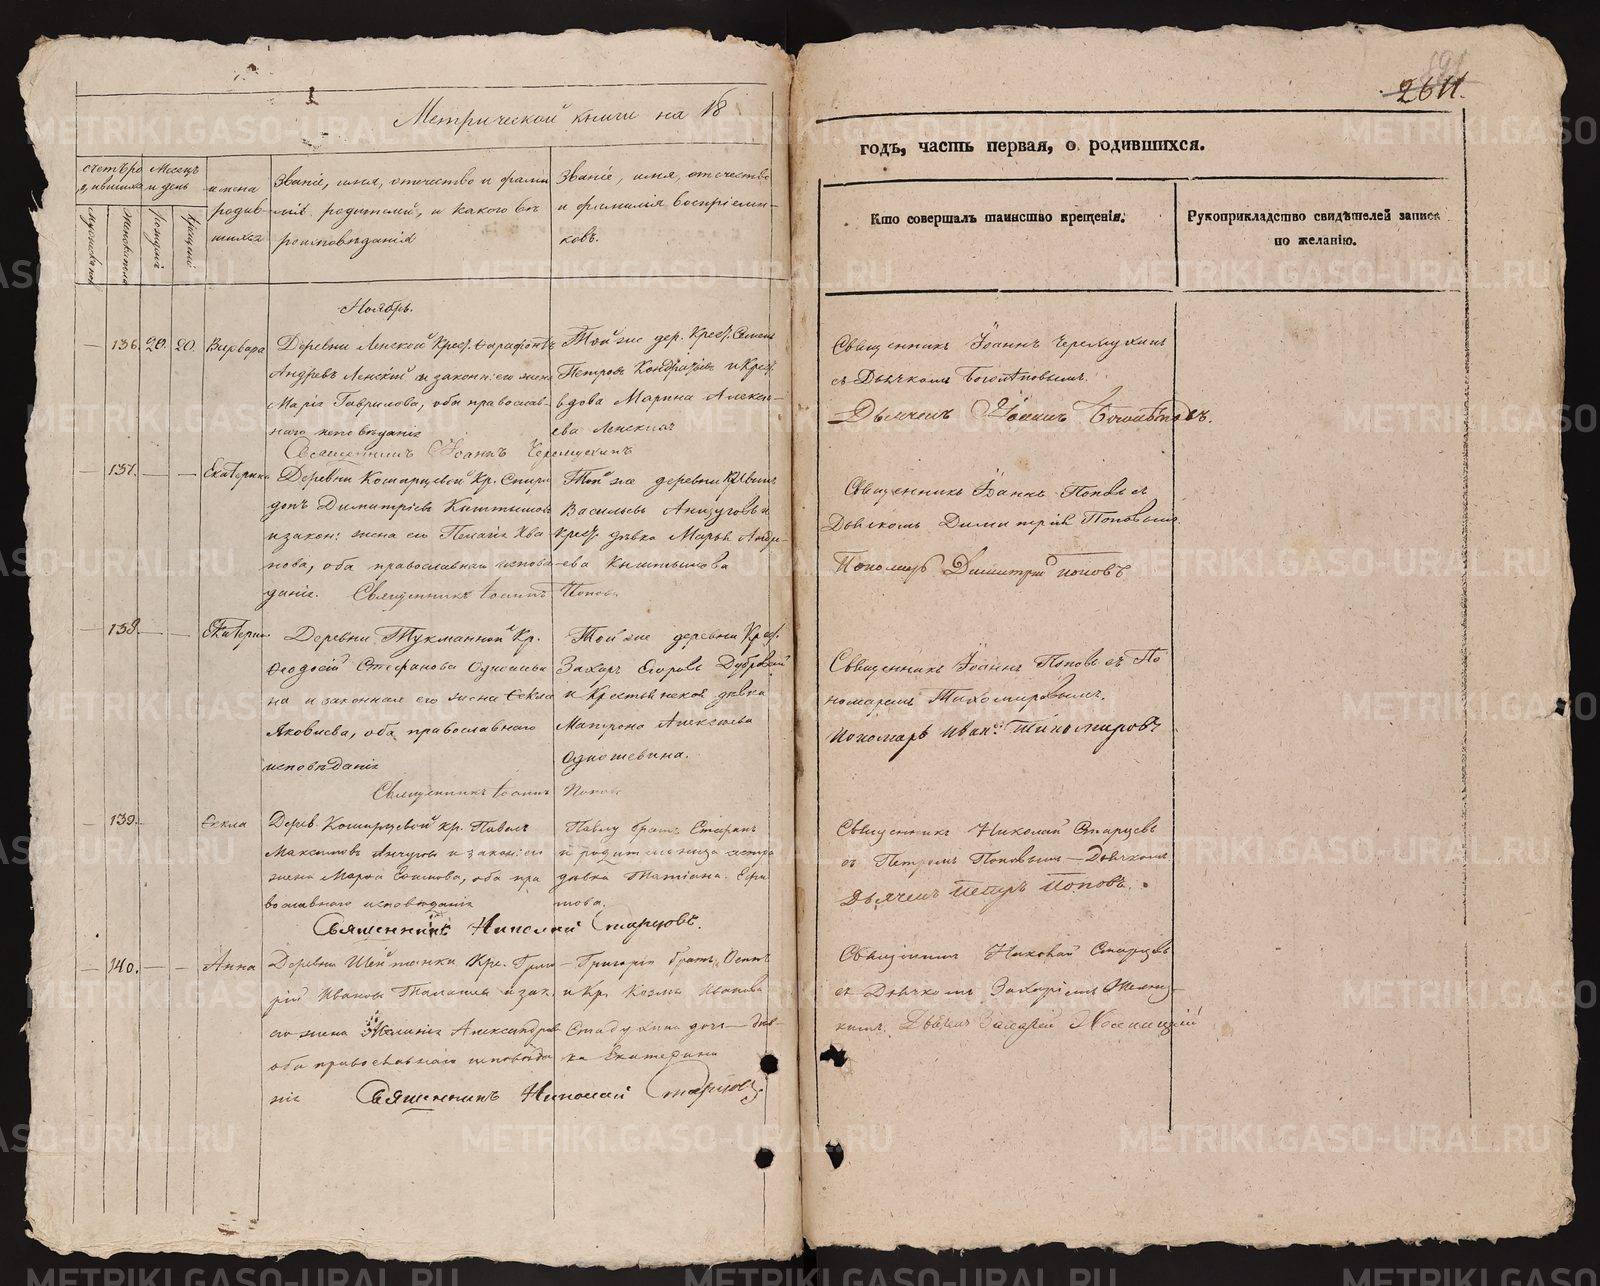 2611.
Метрической книги на 18
годъ, часть первая, о родившихся.
счетъ ро
дившихся
Месяцъ
и день
имена
родив-
шихся
Званіе, имя, отечество и фами-
лія родителей, и какого въ
роисповѣданія
Званіе, имя, отечество
и фамилія воспріемни-
ковъ.
Кто совершалъ таинство крещенія.
Рукоприкладство свидѣтелей записи
по желанію.
Ноябрь.
136. 20. 20. Варвара
Деревни Ленской Крест.
Андреевъ Ленскій и законн: его жена
Марія Гаврилова, оба православ-
наго исповѣданія
Священникъ Іоаннъ Черемухинъ
Той же дер. Крест. Семенъ
Петровъ Кондратьевъ и Крест.
вдова Марина Алексе-
ева Ленскихъ
Священникъ Іоаннъ Черемухинъ
съ Дьячкомъ Боголѣповымъ.
Дьячекъ Іоаннъ Боголѣповъ.
137. Екатерина
Деревни Кошарцевой Кр. Спири
донъ Димитріевъ Киштымовъ
и закон: жена его Пелагія Ива
нова, оба православнаго исповѣ
данія. Священникъ Іоаннъ Поповъ
Той же деревни
Васильевъ Анчуговъ и
Крест. дѣвка Марья Андре-
ева Киштымова
Священникъ Іоаннъ Поповъ съ
Дьячкомъ Димитріемъ Поповымъ.
Пономарь Димитрій Поповъ
138. Екатерина
Деревни Тукманной Кр.
Ѳеодосій Стефановъ
на и законная его жена Ѳекла
Яковлева, оба православнаго
исповѣданія
Священникъ Іоаннъ Поповъ
Той же деревни Крест.
Захаръ Егоровъ Дубровинъ
и Крестьянская дѣвка
Матрона Алексѣева
Одношевина.
Священникъ Іоаннъ Поповъ съ По
номаремъ Тихомировымъ.
Пономарь Иванъ Тихомировъ
139. Ѳекла
Дерев. Кошарцевой кр. Павелъ
Максимовъ Анчуговъ и закон: его
жена Марѳа, оба пра
вославнаго исповѣданія
Священникъ Николай Старцовъ.
Павлу братъ Стефанъ
и родительница сестра
дѣвка Татіана
Священникъ Николай Старцевъ
съ Петромъ Поповымъ — Дьячкомъ
Дьячекъ Петръ Поповъ.
140. Анна
Деревни Шейтанки Кре. Григо
рій Ивановъ и зак.
его жена Меланія Александрова
оба православнаго исповѣда
нія Священникъ Николай Старцовъ.
Григорія братъ Осипъ
и Кр. Козмы Иванова
Стадухина дочь — дѣв-
ка Екатерина
Священникъ Николай Старцевъ
съ Дьячкомъ Захаріемъ